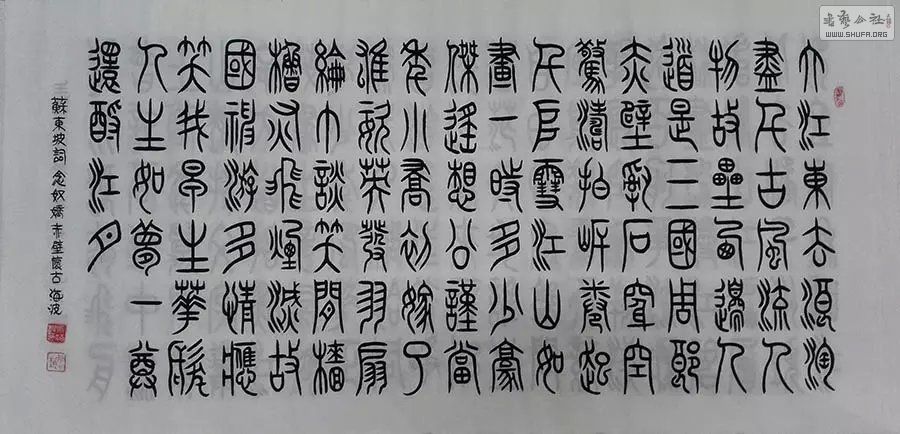 大江東去浪淘
盡千古風流人
物故壘西邊人
道是三國周郎
赤壁亂石穿空
驚濤拍岸卷起
千堆雪江山如
畫一時多少豪
傑遙想公謹當
年小喬初嫁了
雄姿英發羽扇
綸巾談笑間檣
櫓灰飛煙滅故
國神游多情應
笑我早生華髮
人生如夢一尊
還酹江月
蘇東坡詞 念奴嬌赤壁懷古 海波
书艺公社
WWW.SHUFA.ORG